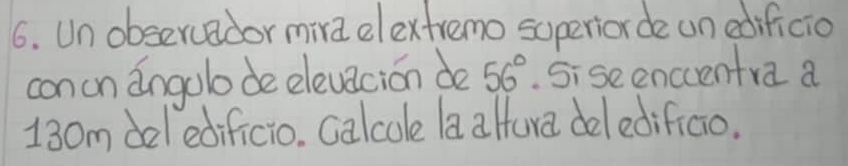 6. Un observador mira el extremo superior de un edificio
con un ángulo de elevación de 56°. Si se encuentra a
130m del edificio. Calcule la altura del edificio.